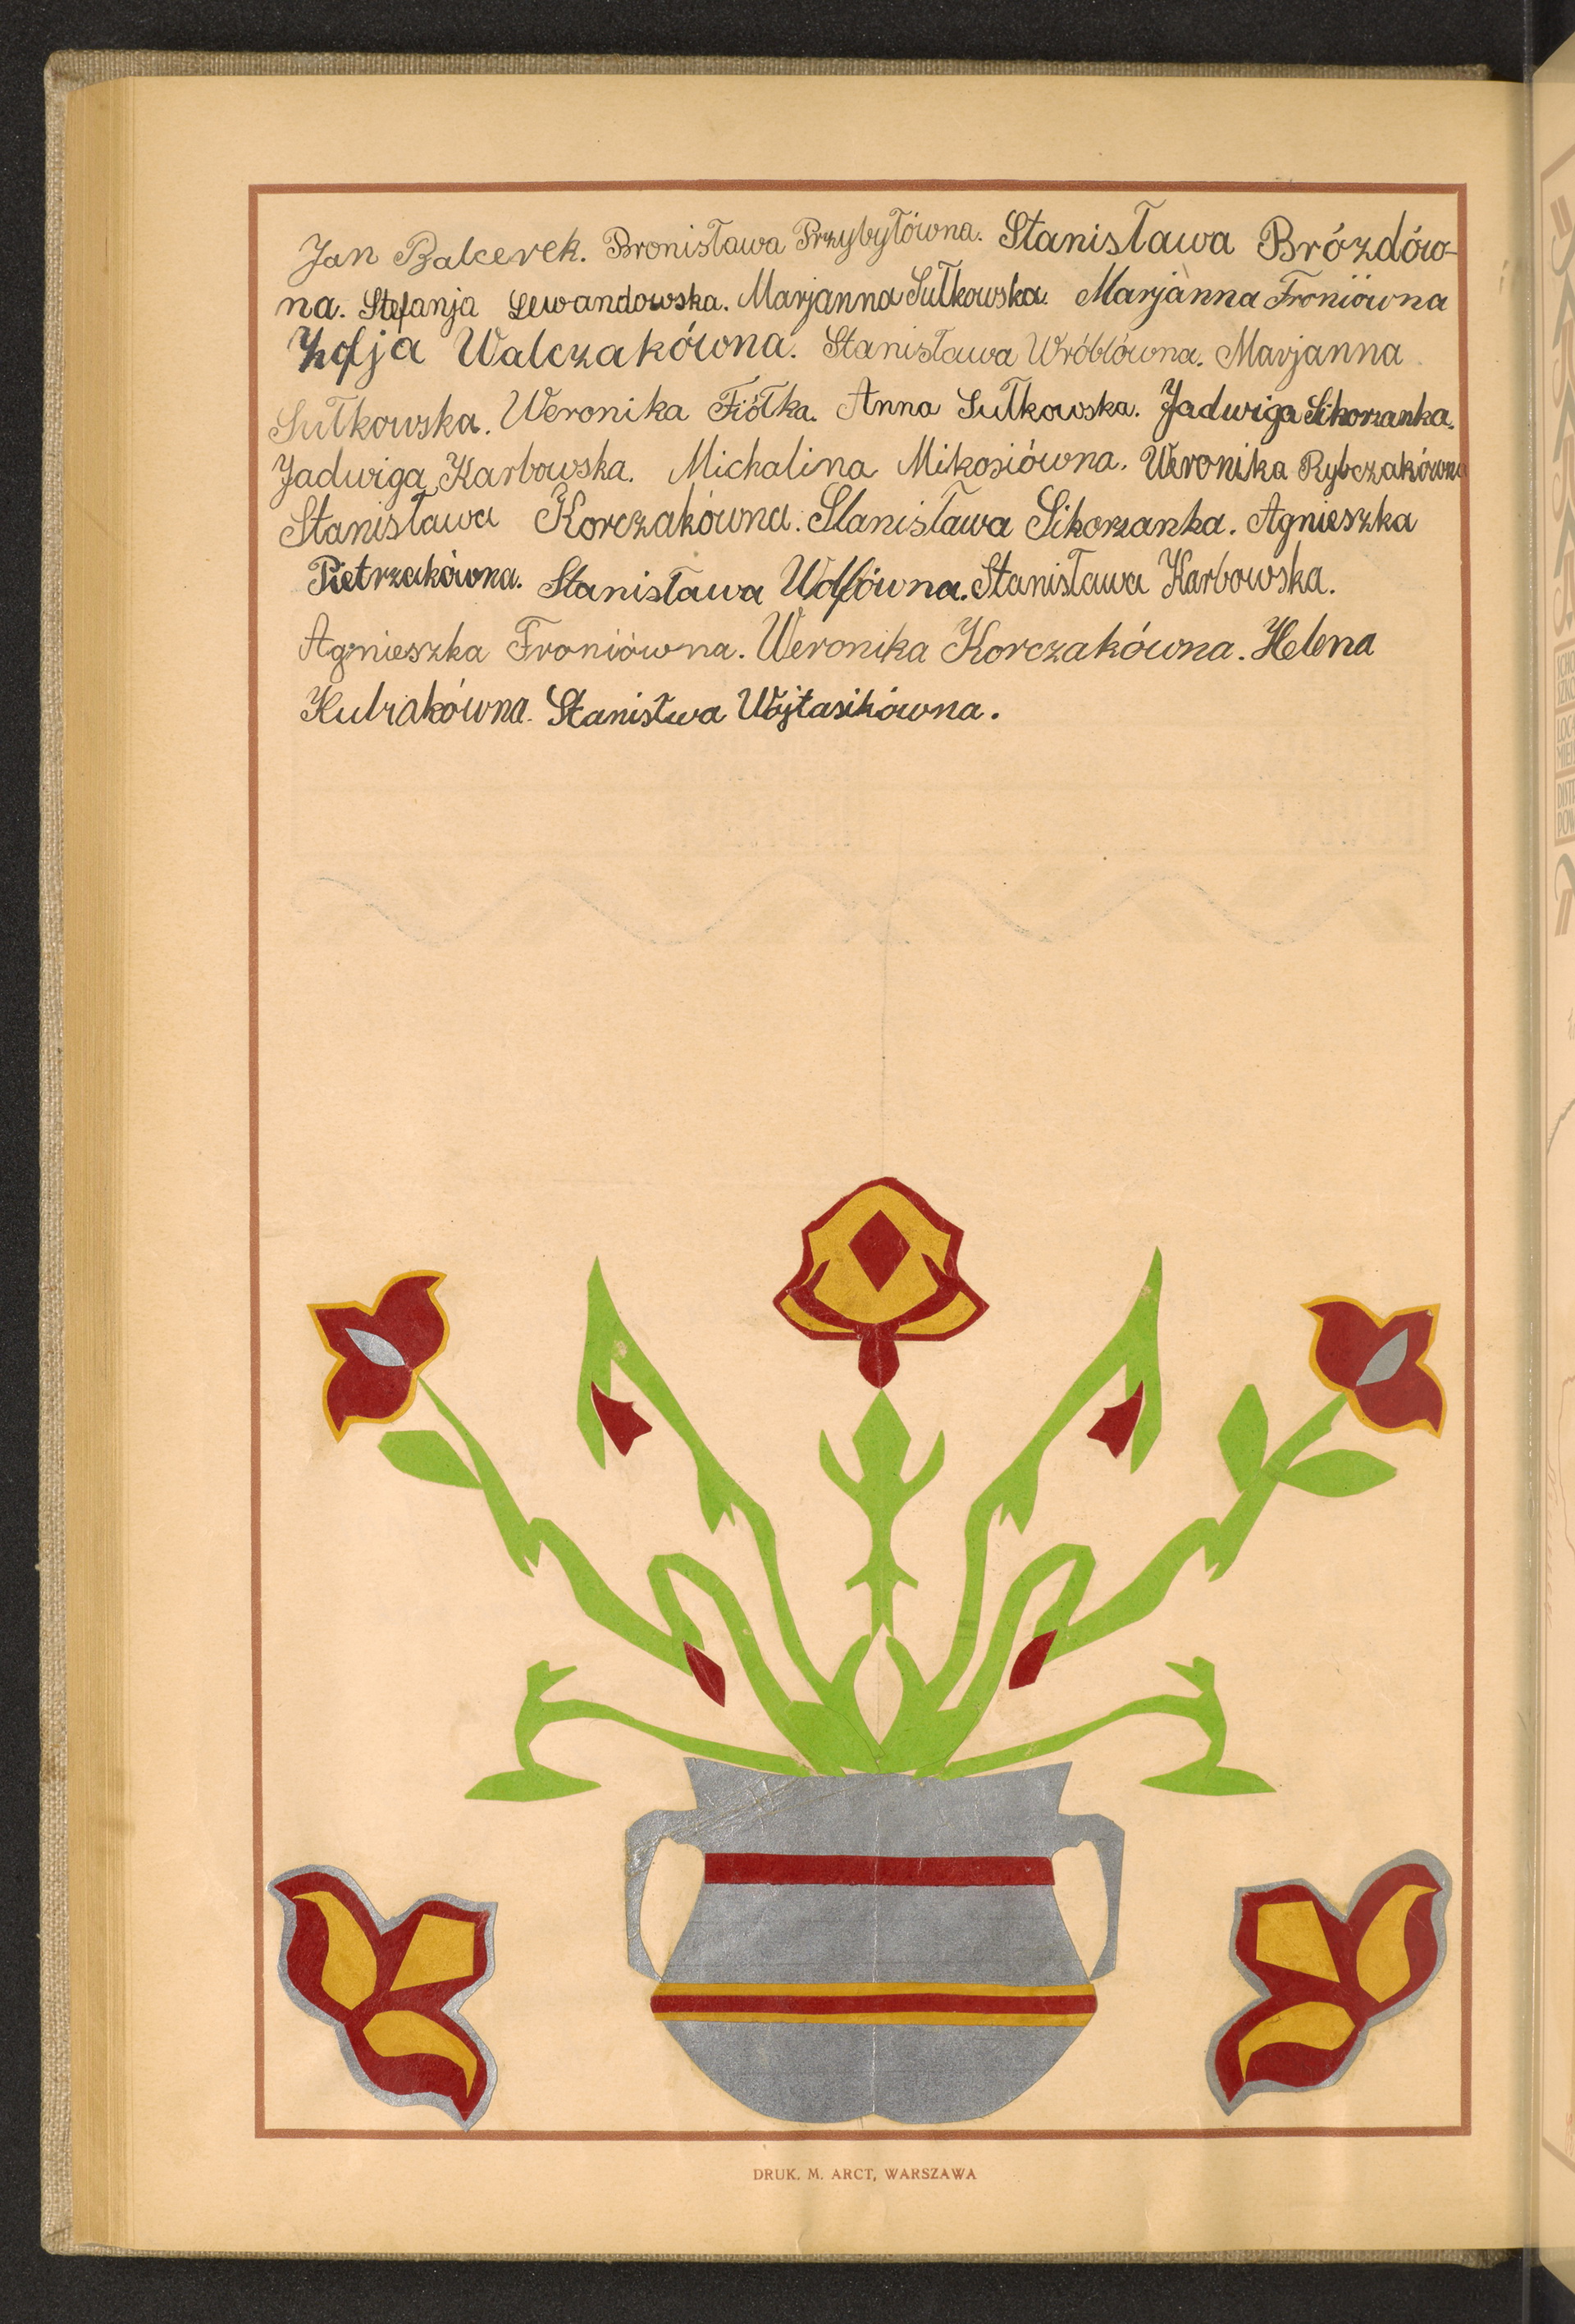 Jan Balcerek. Bronisława Przybyłówna. Stanisława Brózdów-
na. Stefanja Lewandowska. Marjanna Sułkowska. Marjanna Froniówna
Zofja Walczakówna. Stanisława Wróblówna. Marjanna
Sułkowska. Weronika Fiółka. Anna Sułkowska. Jadwiga Sikorzanka.
Jadwiga Karbowska. Michalina Mikosiówna. Weronika Rybczakówna
Stanisława Korczakówna. Stanisława Sikorzanka. Agnieszka
Pietrzakówna. Stanisława Stanisława Karbowska.
Agnieszka Froniówna. Weronika Korczakówna. Helena
Kubiakówna. Stanistwa Wojtasikówna.
DRUK. M. ARCT, WARSZAWA